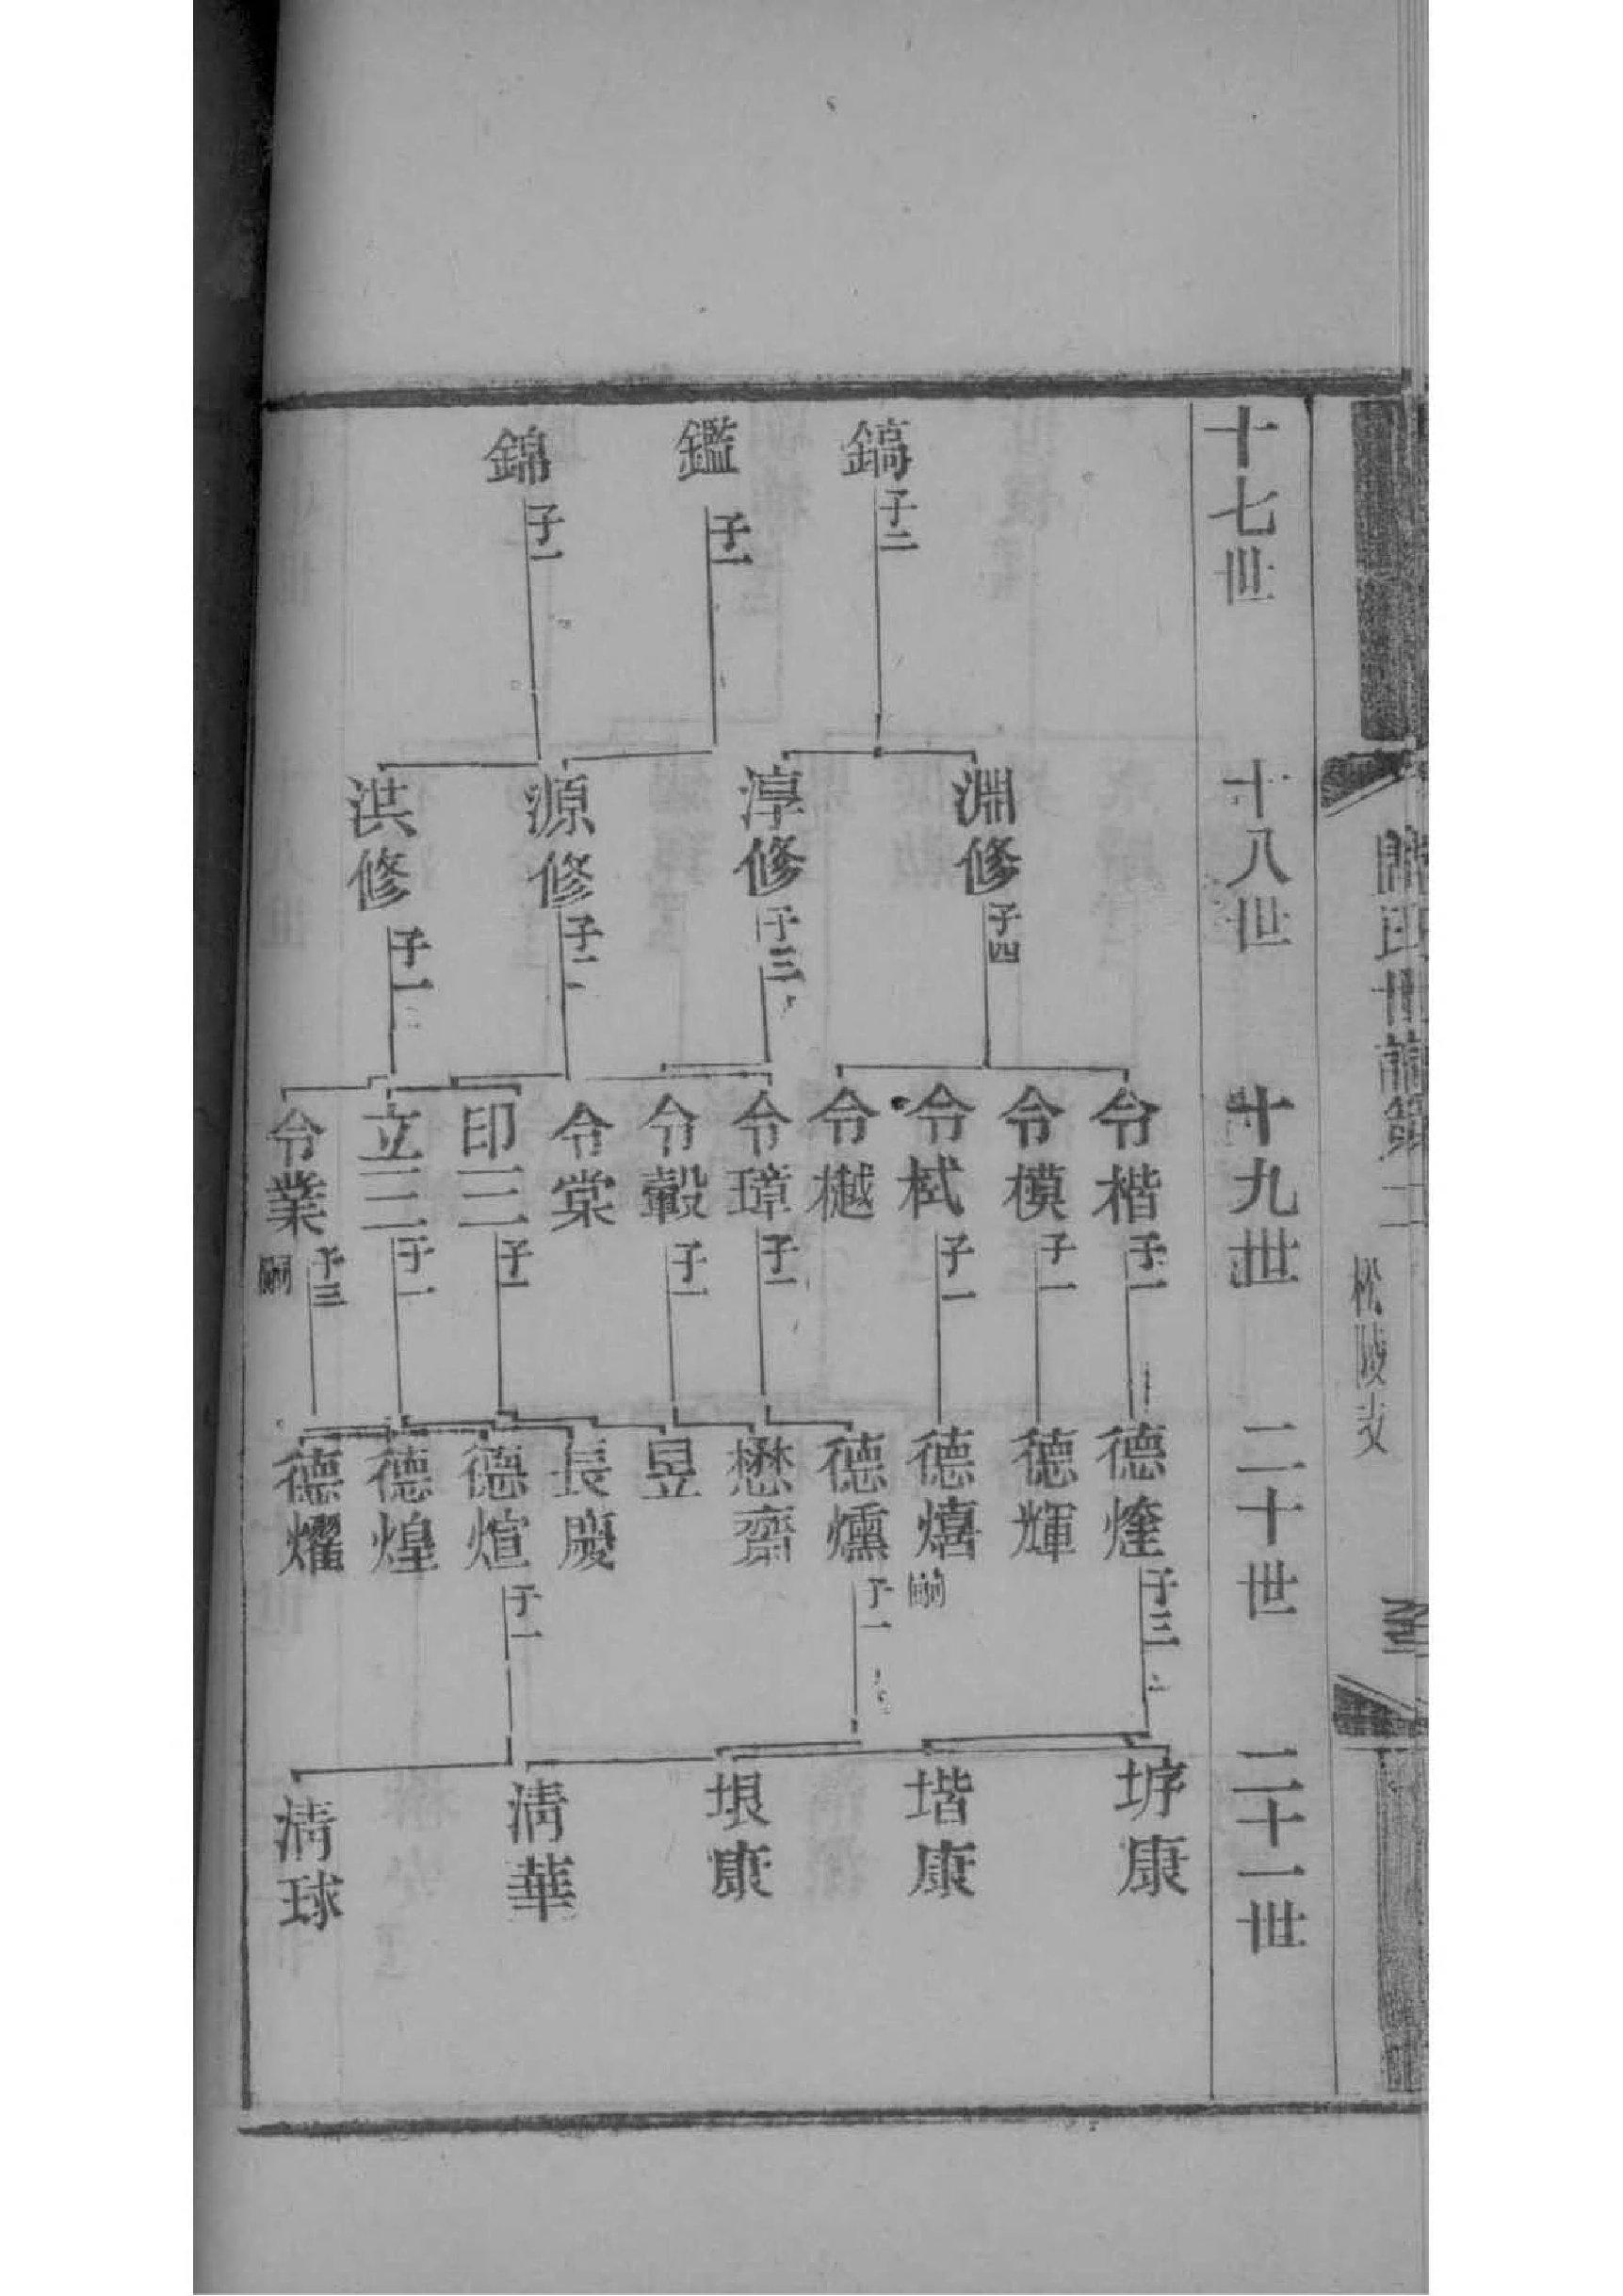 世前編二
松陵支
十七世
十八世
十九世
二十世
二十一世
鎬 子二
鑑 子一
錦 子一
淵修 子四
淳修 子三
源修 子二
洪修 子一
令楷 子一
令模 子一
令栻 子一
令樾
令璋 子一
令轂 子一
令棠
印三 子一
立三 子一
令業 子三 嗣
德煃 子三
德輝
德熺 嗣
德燻 子一
懋齋
昱
長慶
德煊 子一
德煌
德燿
垿康
堦康
垠康
清華
清球